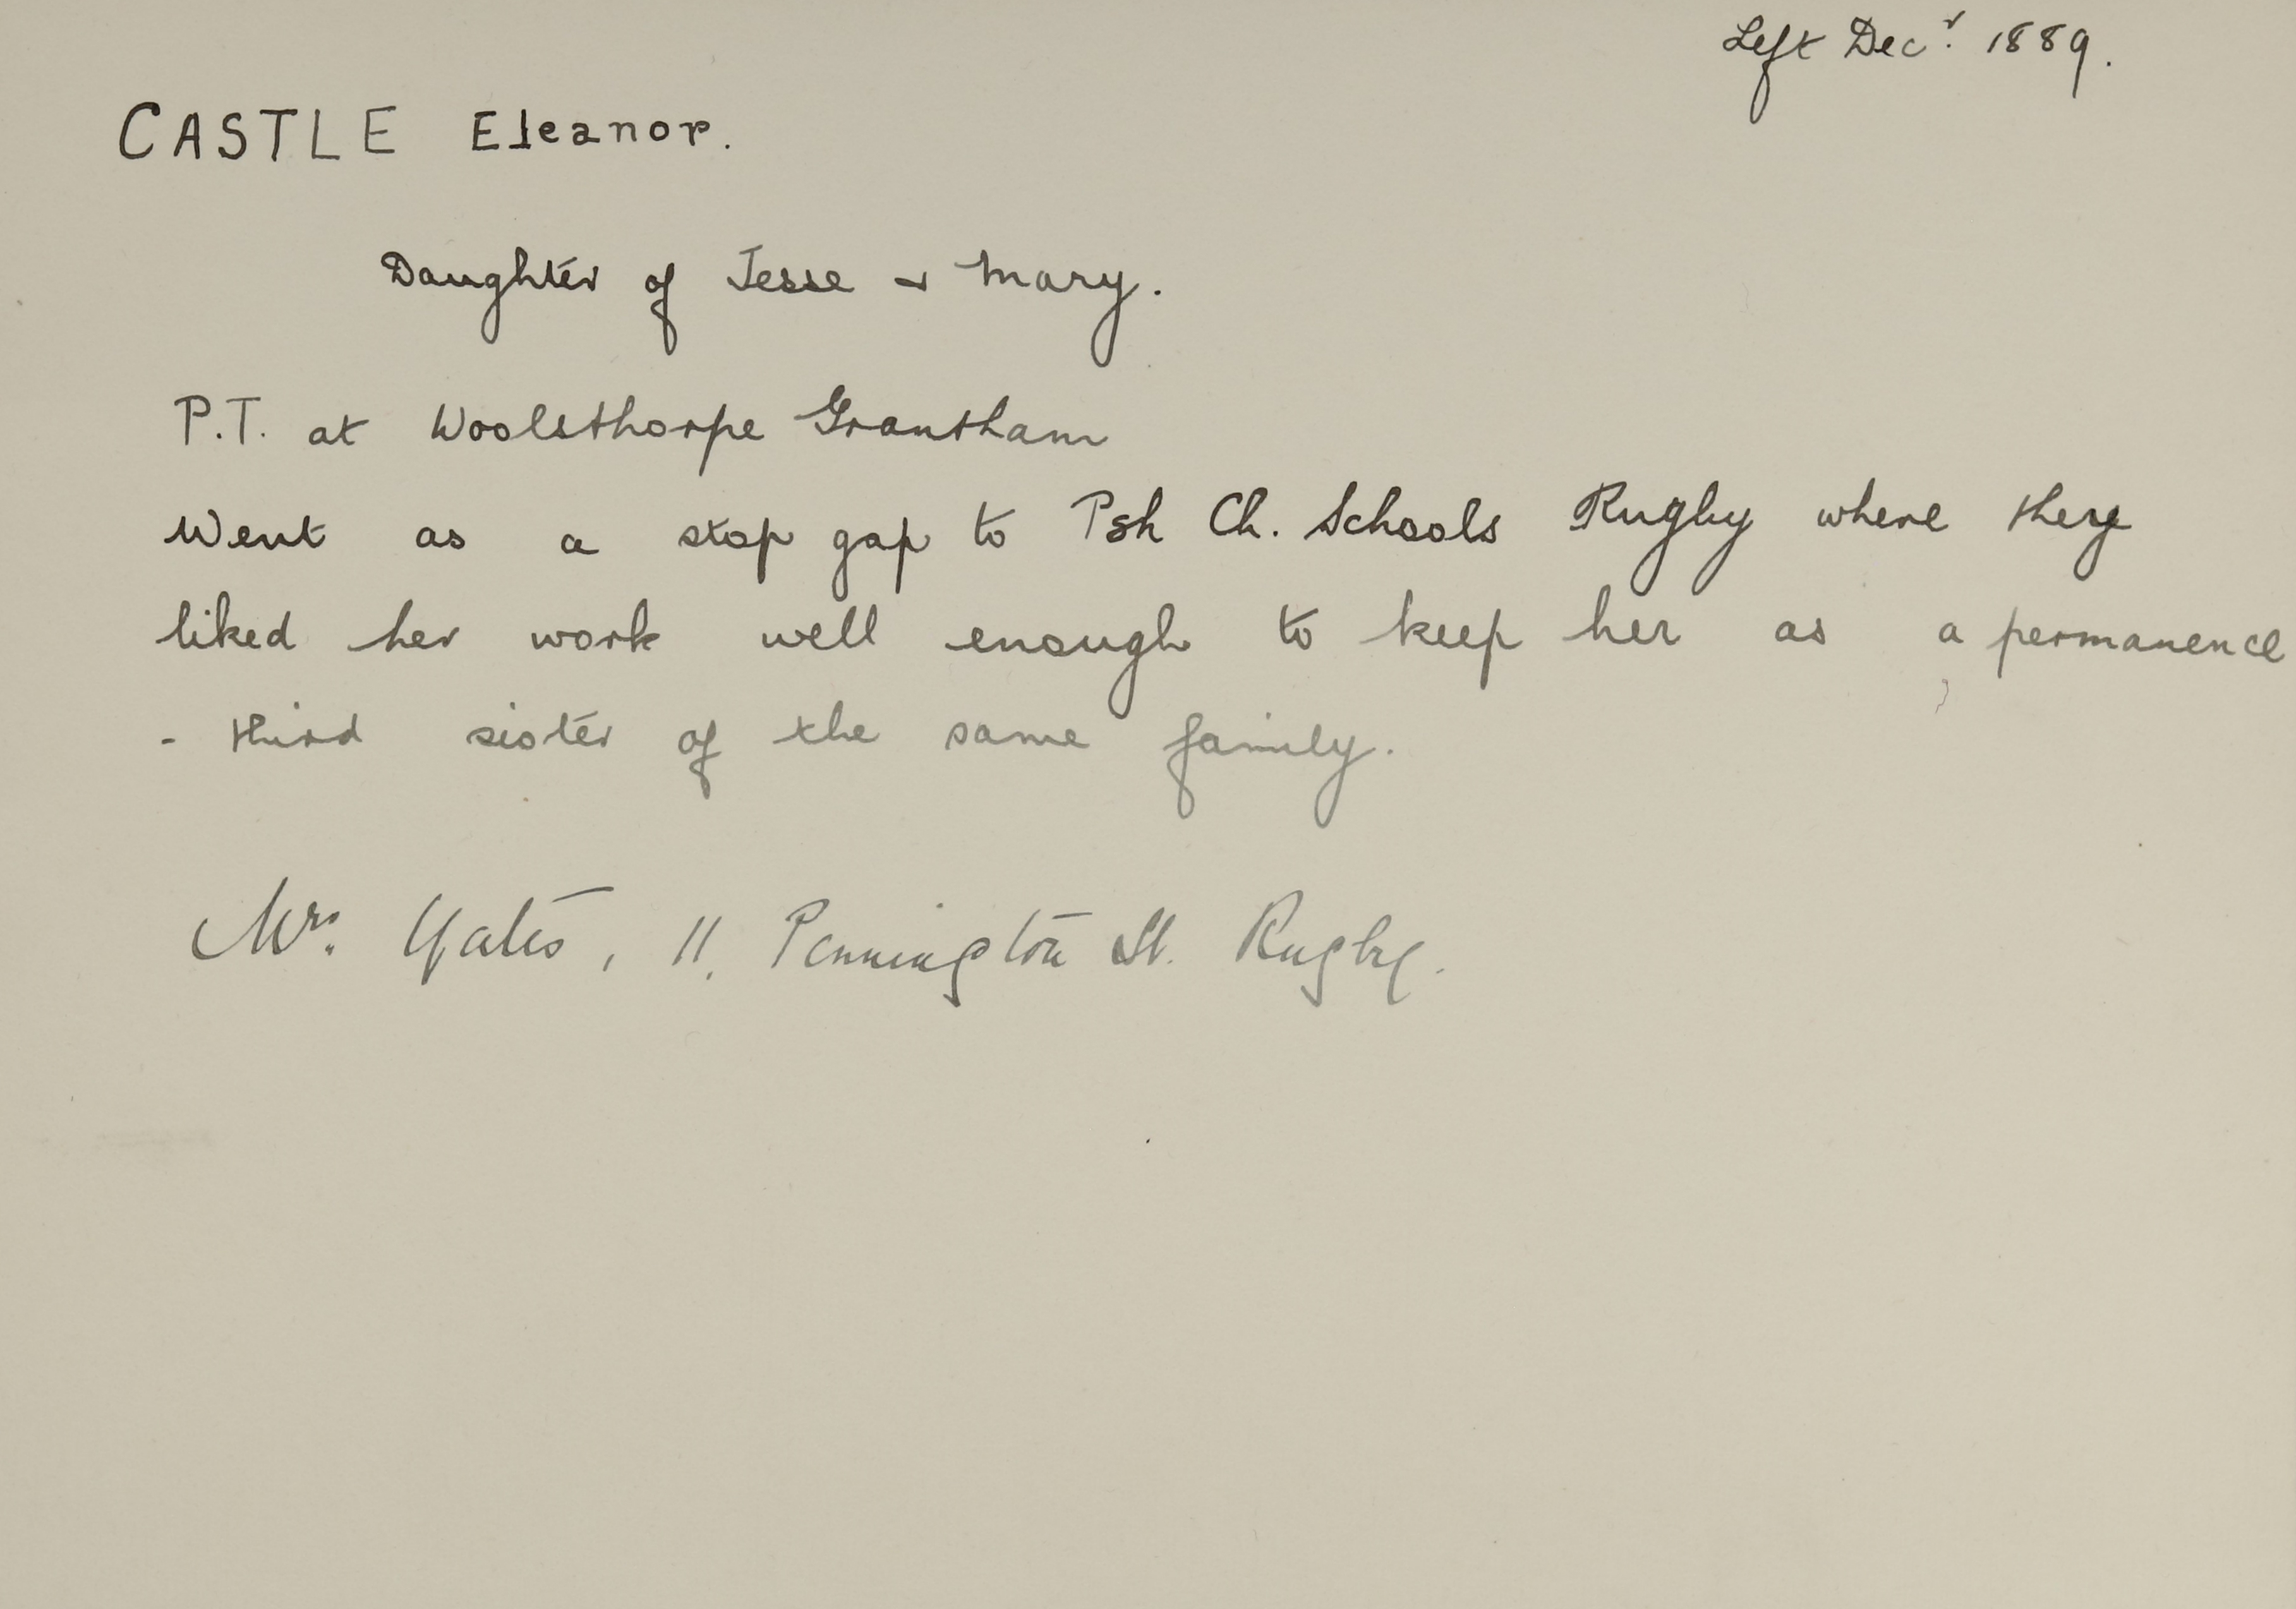 Left Decr. 1889.
CASTLE Eleanor.
Daughter of Jesse & Mary.
P.T. at Woolsthorpe Grantham
Went as a stop gap to Psh Ch. Schools Rugby where they
liked her work well enough to keep her as a permanence
- third sister of the same family.
Mrs. Yates, 11, Pennington St. Rugby.